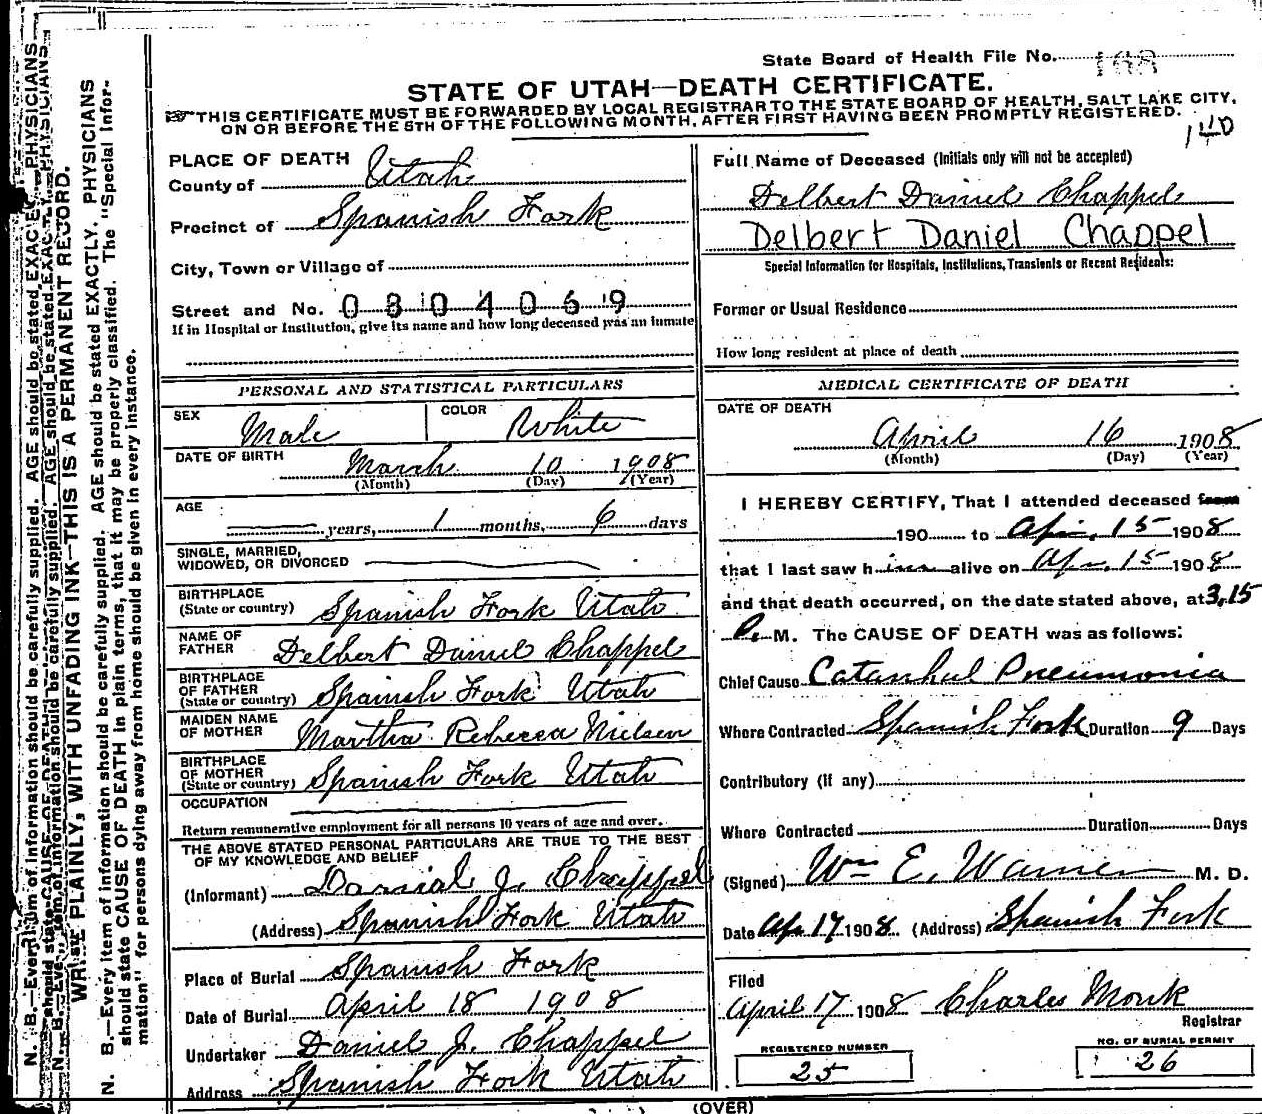 State Board of Health File No. 168
STATE OF UTAH—DEATH CERTIFICATE.
THIS CERTIFICATE MUST BE FORWARDED BY LOCAL REGISTRAR TO THE STATE BOARD OF HEALTH, SALT LAKE CITY,
ON OR BEFORE THE 5TH OF THE FOLLOWING MONTH, AFTER FIRST HAVING BEEN PROMPTLY REGISTERED.
140
PLACE OF DEATH
County of Utah
Precinct of Spanish Fork
City, Town or Village of
Street and No. 0804069
If in Hospital or Institution, give its name and how long deceased was an inmate
PERSONAL AND STATISTICAL PARTICULARS
SEX Male COLOR White
DATE OF BIRTH March 10 1908
(Month) (Day) (Year)
AGE years, 1 months, 6 days
SINGLE, MARRIED,
WIDOWED, OR DIVORCED
BIRTHPLACE
(State or country) Spanish Fork Utah
NAME OF
FATHER Delbert Daniel Chappel
BIRTHPLACE
OF FATHER
(State or country) Spanish Fork Utah
MAIDEN NAME
OF MOTHER Martha Rebecca Nielsen
BIRTHPLACE
OF MOTHER
(State or country) Spanish Fork Utah
OCCUPATION
Return remunerative employment for all persons 10 years of age and over.
THE ABOVE STATED PERSONAL PARTICULARS ARE TRUE TO THE BEST
OF MY KNOWLEDGE AND BELIEF
(Informant) Danial J. Chappel
(Address) Spanish Fork Utah
Place of Burial Spanish Fork
Date of Burial April 18 1908
Undertaker Daniel J. Chappel
Address Spanish Fork Utah
Full Name of Deceased (Initials only will not be accepted)
Delbert Daniel Chappel
Delbert Daniel Chappel
Special Information for Hospitals, Institutions, Transients or Recent Residents:
Former or Usual Residence
How long resident at place of death
MEDICAL CERTIFICATE OF DEATH
DATE OF DEATH
April 16 1908
(Month) (Day) (Year)
I HEREBY CERTIFY, That I attended deceased from
190 to Apr. 15 1908
that I last saw him alive on Apr. 15 1908
and that death occurred, on the date stated above, at 3.15
P. M. The CAUSE OF DEATH was as follows:
Chief Cause Catarrhal Pneumonia
Where Contracted Spanish Fork Duration 9 Days
Contributory (if any)
Where Contracted Duration Days
(Signed) Wm E. Warner M. D.
Date Apr 17 1908 (Address) Spanish Fork
Filed
April 17 1908 Charles Monk
Registrar
REGISTERED NUMBER
25
NO. OF BURIAL PERMIT
26
(OVER)
WRITE PLAINLY, WITH UNFADING INK—THIS IS A PERMANENT RECORD.
N. B.—Every item of information should be carefully supplied. AGE should be stated EXACTLY. PHYSICIANS
should state CAUSE OF DEATH in plain terms, that it may be properly classified. The "Special Infor-
mation" for persons dying away from home should be given in every instance.